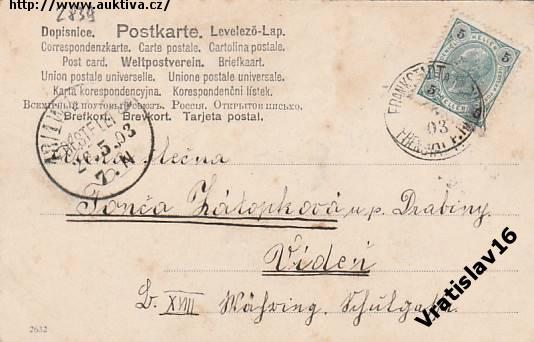 http://www.auktiva.cz/
2839
Dopisnice. Postkarte. Levelező-Lap.
Correspondenzkarte. Carte postale. Cartolina postale.
Post card. Weltpostverein. Briefkaart.
Union postale universelle. Unione postale universale.
Karta korespondencyjna. Korespondenční lístek.
Всемірный почтовый союзъ. Россія. Открытое письмо.
Brefkort. Brevkort. Tarjeta postal.
5 5
FRANKSTADT
5
03
BESTELLT
5.03
7.N
slečna
Tonča Zátopková u p. Drabiny
Vídeň
B. XVIII Währing. Schulgasse
2652
Vratislav16